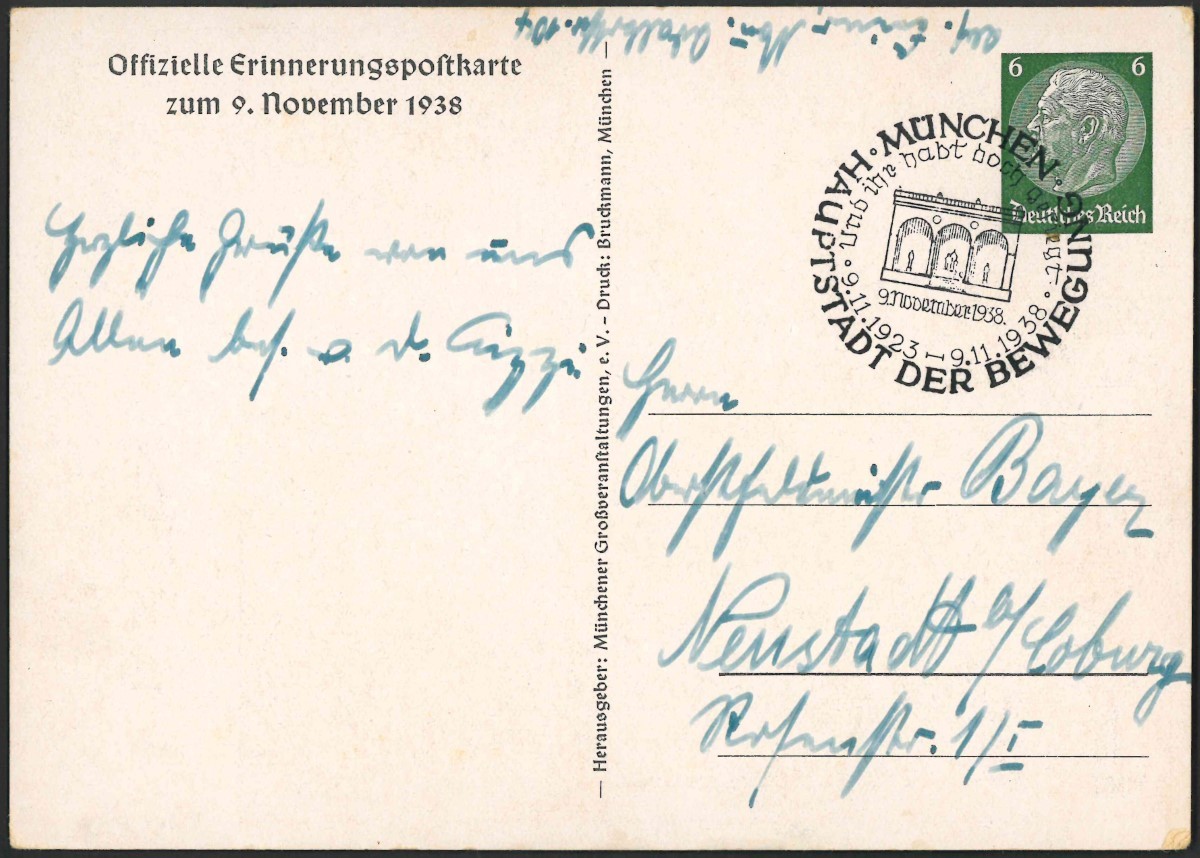 Offizielle Erinnerungspostkarte
zum 9. November 1938
Herzliche Grüße von uns
Allen bes. v. d.
— Herausgeber: Münchener Großveranstaltungen, e. V. – Druck: Bruckmann, München —
6 6
Deutsches Reich
MÜNCHEN · HAUPTSTADT DER BEWEGUNG ·
Und ihr habt doch gesiegt ·
9. November 1938.
9.11.1923 — 9.11.1938
Herrn
Bayer
Neustadt b/Coburg
Rosenstr. 1/I